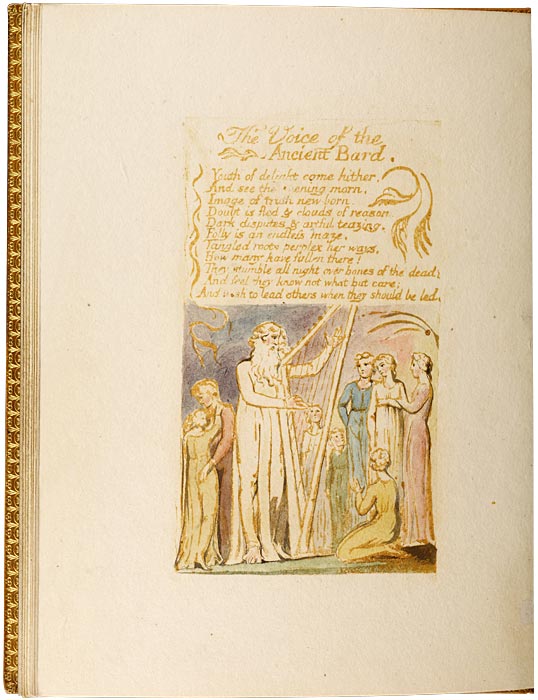 The Voice of the
Ancient Bard.
Youth of delight come hither,
And see the opening morn,
Image of truth new born.
Doubt is fled & clouds of reason
Dark disputes & artful teazing.
Folly is an endless maze,
Tangled roots perplex her ways,
How many have fallen there!
They stumble all night over bones of the dead;
And feel they know not what but care;
And wish to lead others when they should be led.